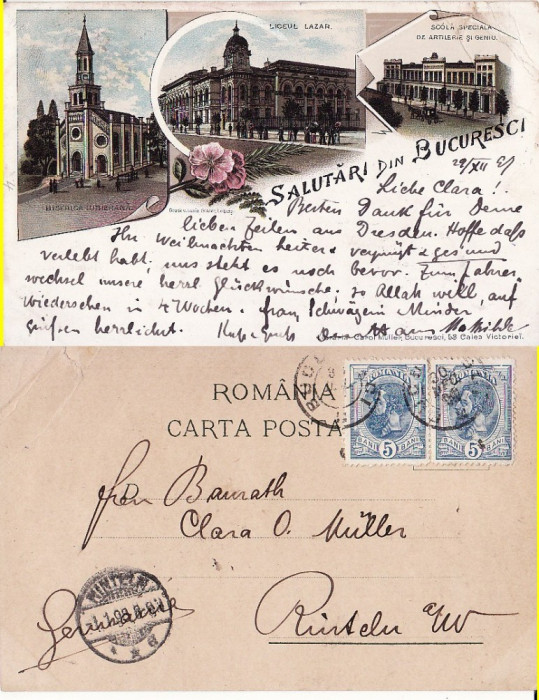 LICEUL LAZAR.
SCÓLA SPECIALA
DE ARTILERIE ȘI GENIU.
BISERICA LUTHERANA.
SALUTĂRI DIN BUCURESCI
29/XII
Liebe Clara!
Besten Dank für Deine
lieben Zeilen aus Dresden. Hoffe daß
Ihr Weihnachten heiter & vergnügt & gesund
verlebt habt, uns steht es noch bevor. Zum Jahres
wechsel unsere herzl Glückwünsche. So Allah will, auf
Wiedersehen in 4 Wochen. Frau Schwägerin Minder
grüßen herzlichst. Mathilde
Carol Müller, Bucuresci, 53 Calea Victoriei.
ROMÂNIA
CARTA POSTA
ROMANIA ROMANIA
BANI 5 BANI BANI 5 BANI
Frau Baurath
Clara O. Müller
RINTELN
Germania
Rinteln a/W